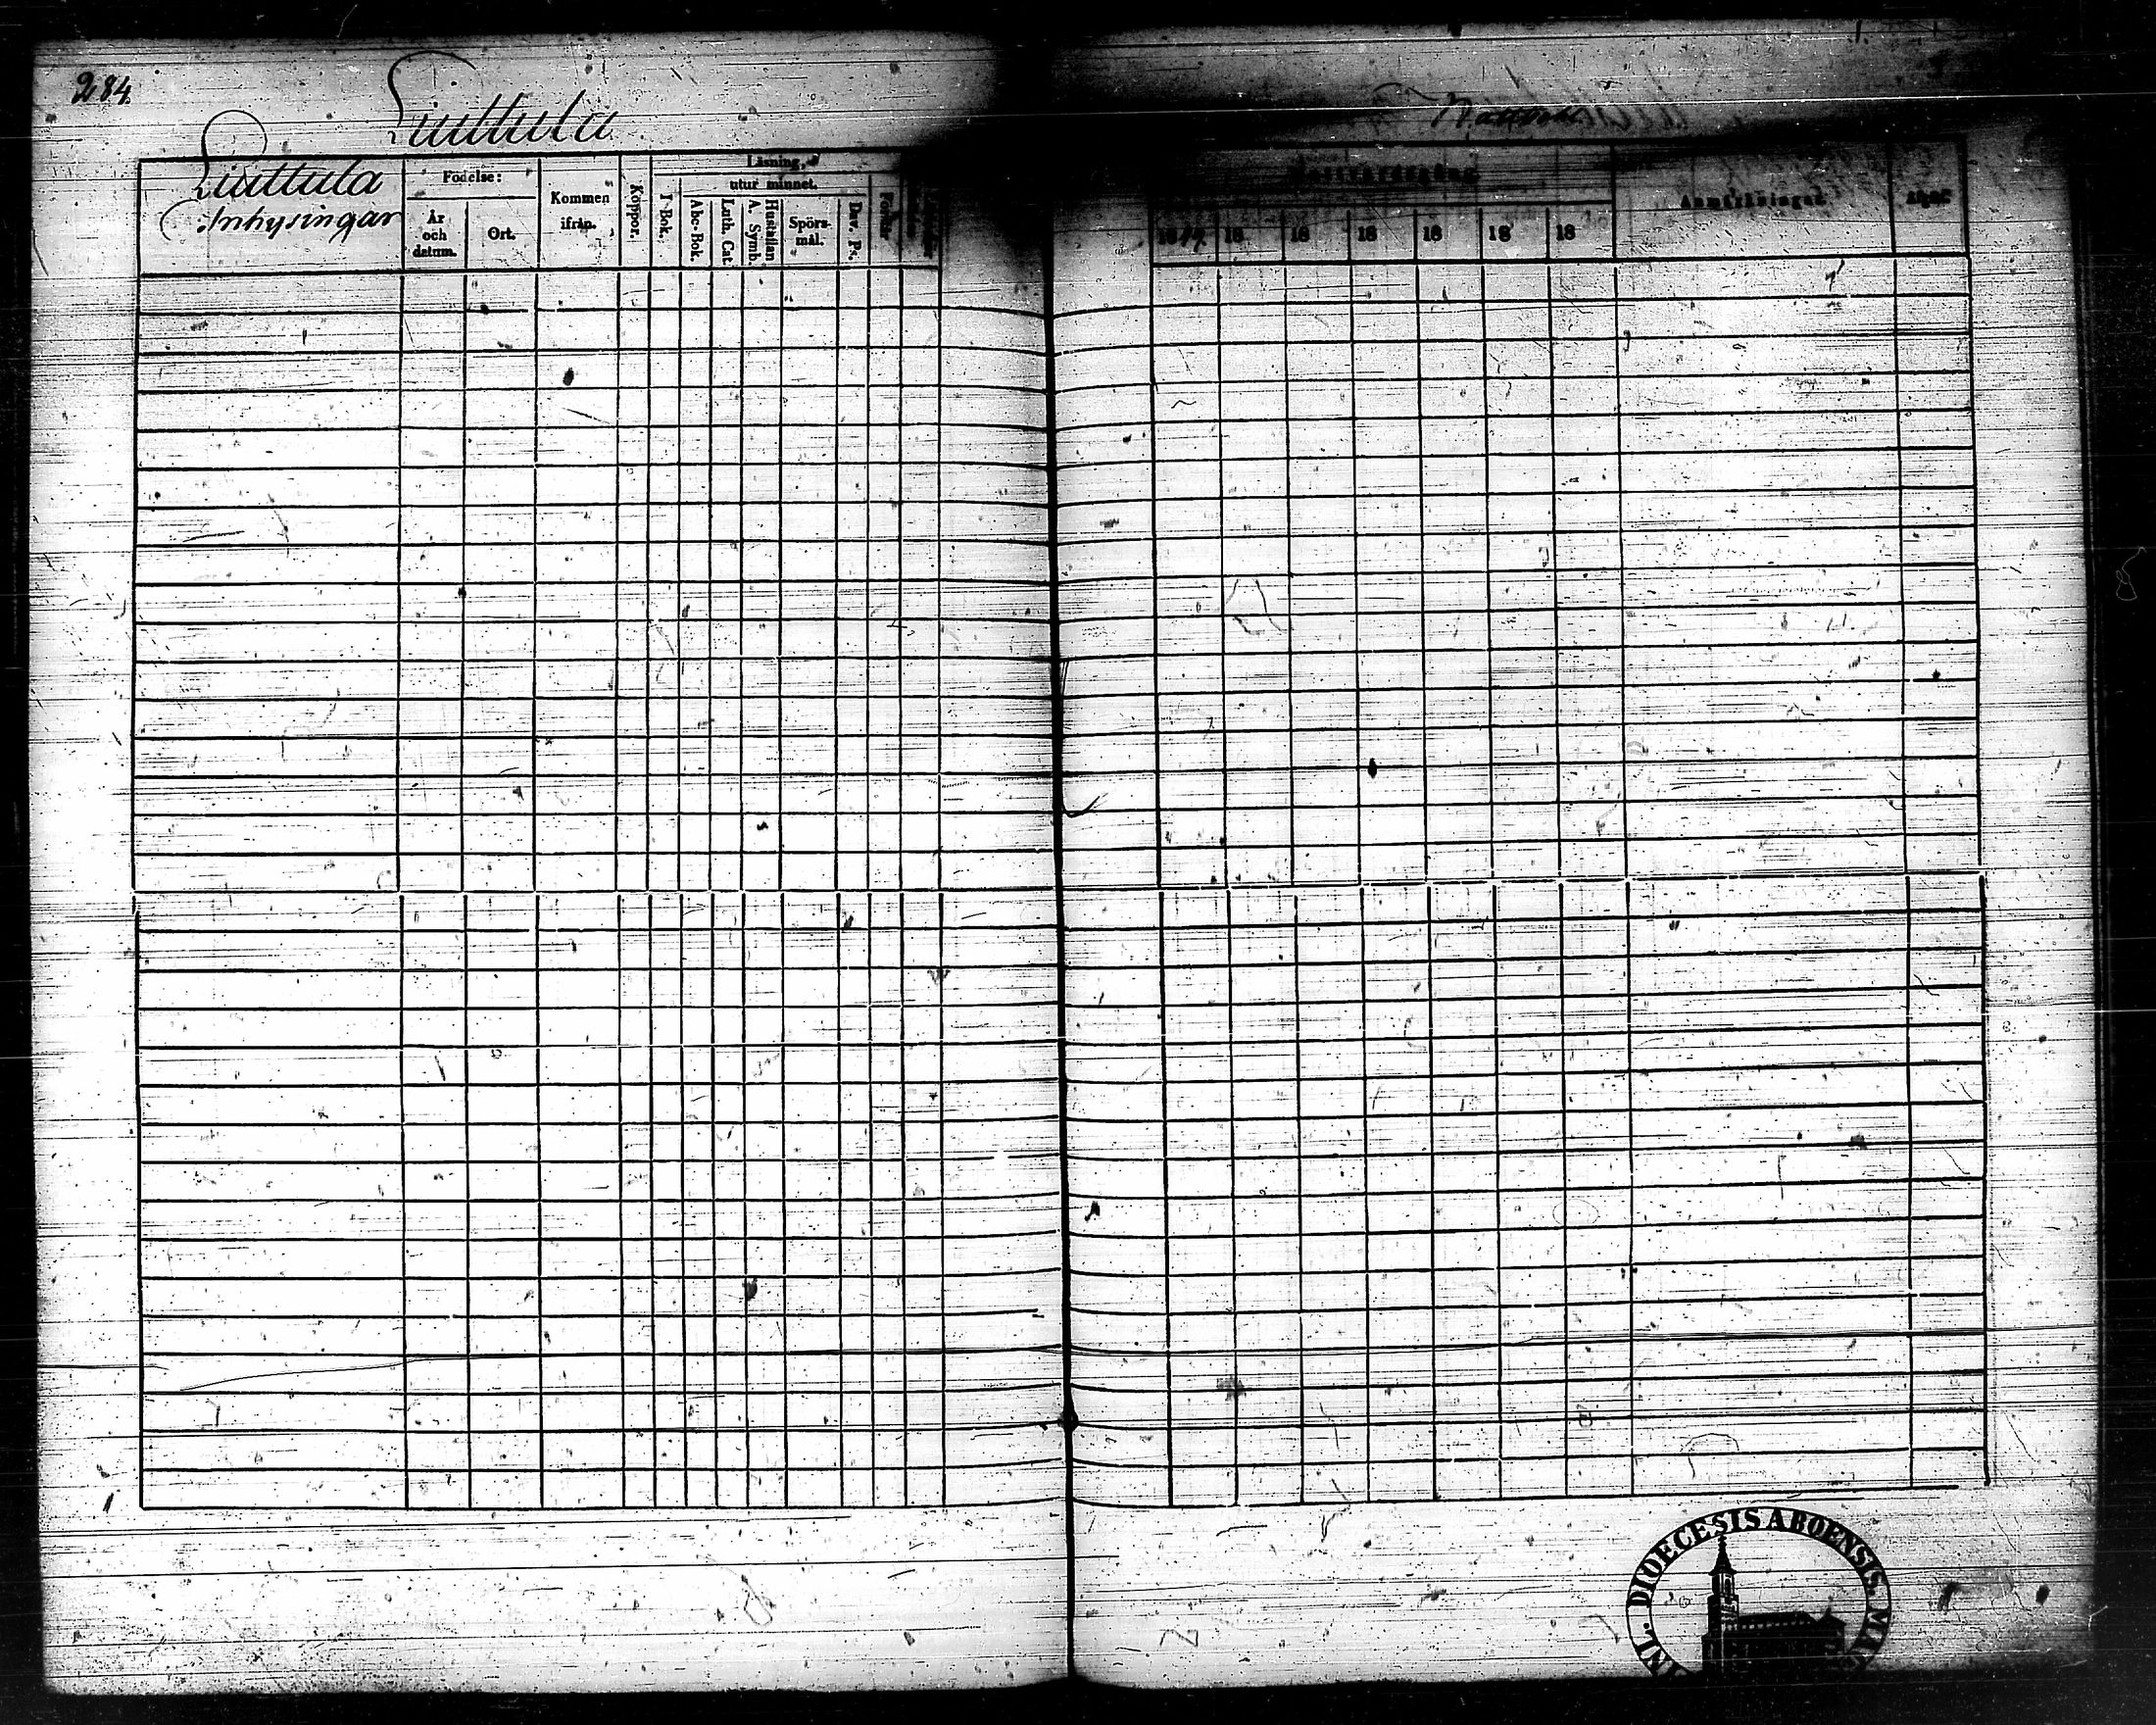 284.
Liuttula
Liuttula
Inhysingar
Födelse:
År och datum.
Ort.
Kommen ifrån.
Koppor.
Läsning,
utur minnet.
I Bok.
Abc-Bok.
Luth. Cat.
Hustaflan A. Symb.
Spörsmål.
Dav. Ps.
Förhör
Nattvardsgång
18 18 18 18 18 18 18
Anmärkningar.
DIOECESIS ABOENSIS.